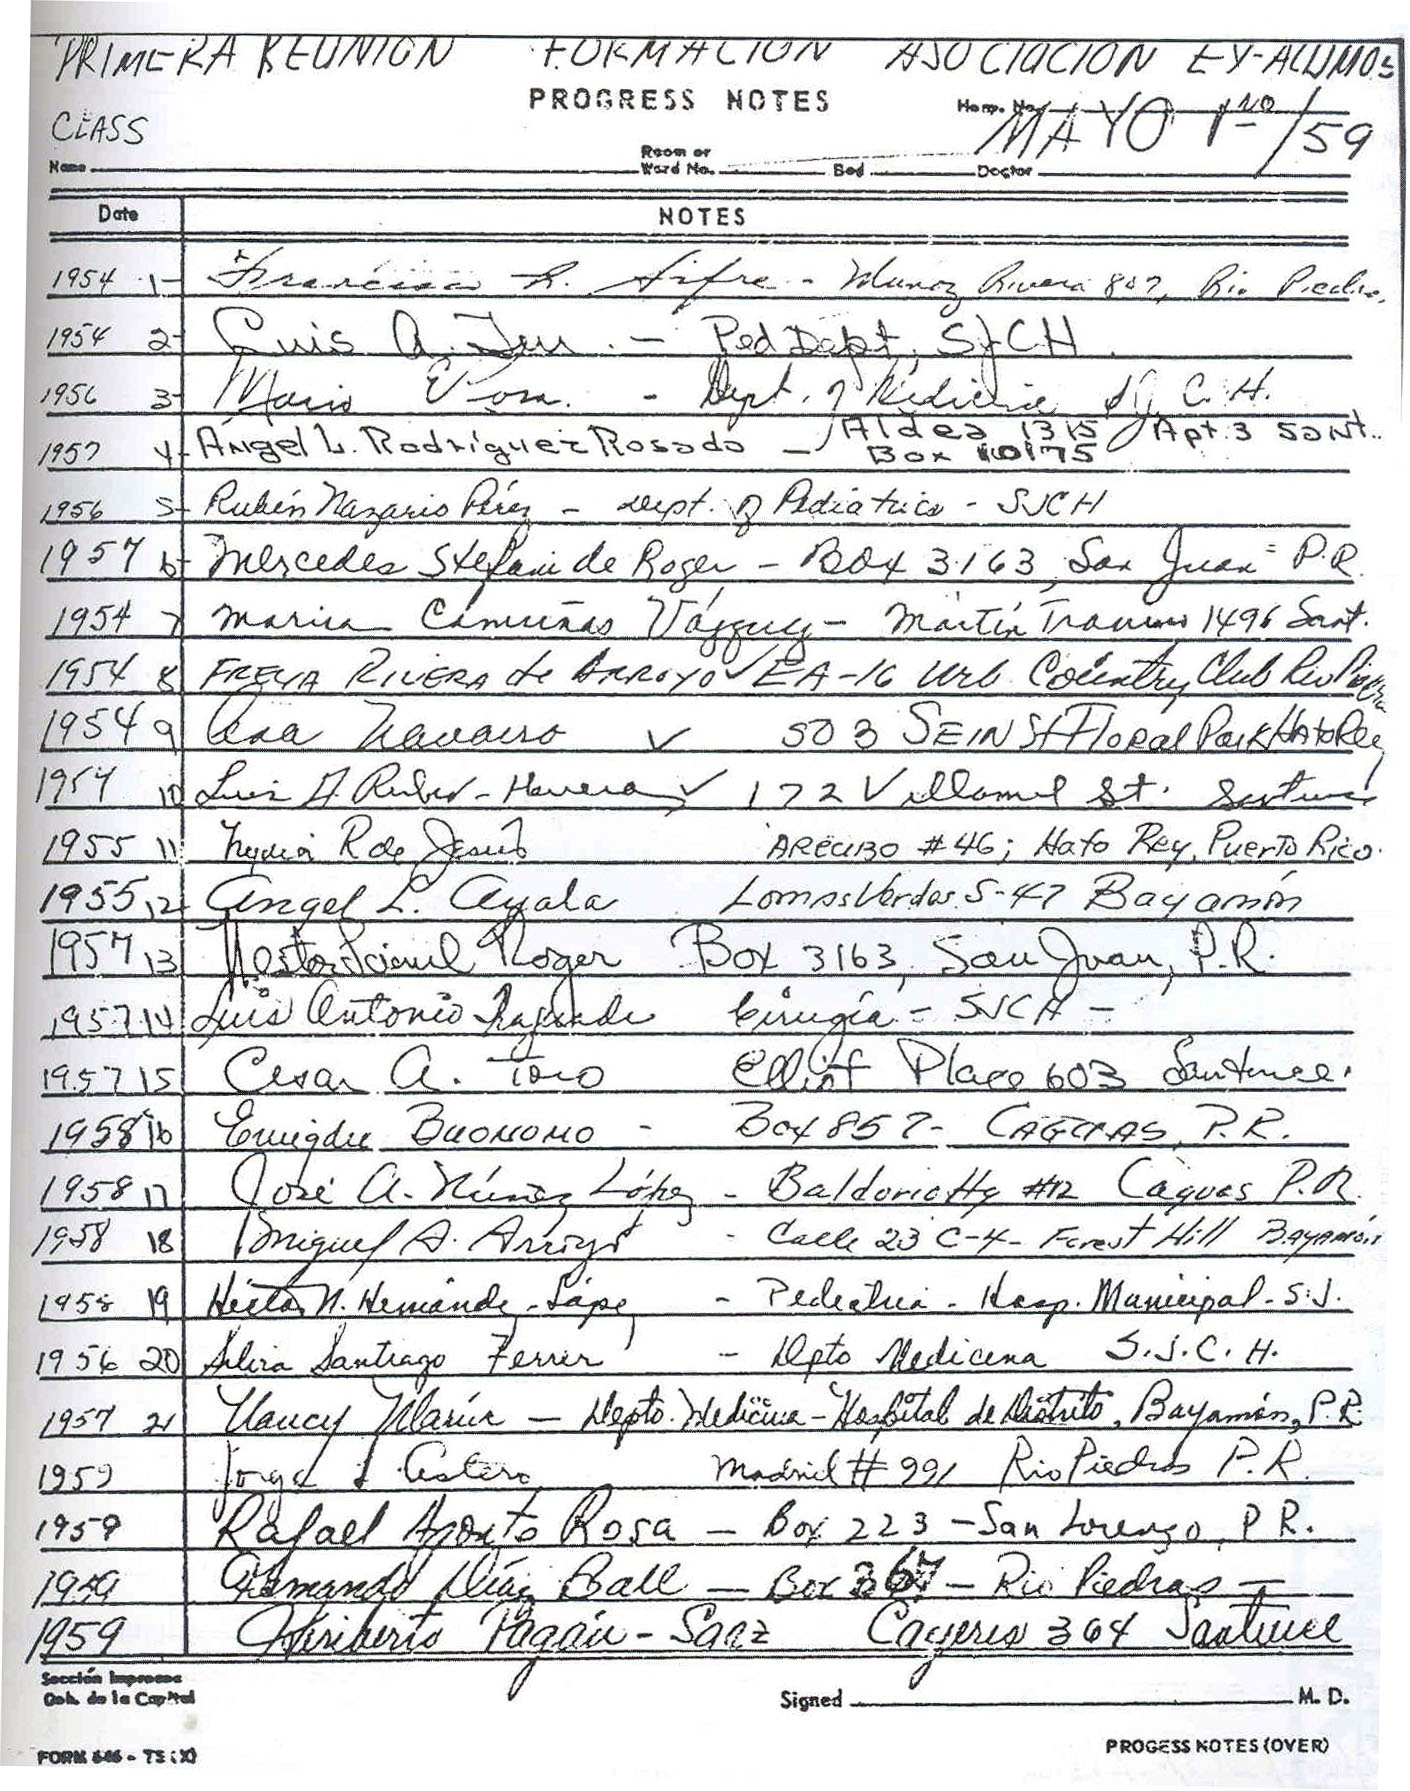 PRIMERA REUNION FORMACION ASOCIACION EX-ALUMNOS
PROGRESS NOTES Hosp. No.
CLASS MAYO 1no/59
Name Room or Ward No. Bed Doctor
Date NOTES
1954 1- Francisco R. Sifre - Munoz Rivera 807, Rio Piedras.
1954 2- Luis A. - Ped Dept, SJCH
1956 3- Mario - Dept. of Medicine S.J.C.H.
1957 4- Angel L. Rodríguez Rosado - Aldea 1315 Apt. 3 Sant.
Box 10175
1956 5- Rubén Nazario Pérez - Dept. of Pediatrics - SJCH
1957 6- Mercedes Stefani de Roger - Box 3163, San Juan P.R.
1954 7 Marisa Camuñas Vázquez - Martín Travieso 1496 Sant.
1954 8 FREYA RIVERA de ARROYO ✓ EA-16 Urb. Country Club Rio Piedras
1954 9 Ana Navarro ✓ 503 SEIN St Floral Park Hato Rey
1954 10 Luis A. - Herrera ✓ 172 Villamil St. Santurce
1955 11 R de Jesús ARECIBO #46; Hato Rey, Puerto Rico.
1955 12 Angel L. Ayala Lomas Verdes S-47 Bayamón
1957 13 Nestor Roger Box 3163, San Juan, P.R.
1957 14 Luis Antonio Cirugía - SJCH -
1957 15 Cesar A. Toro Elliot Place 603 Santurce.
1958 16 Emigdio BUONOMO - Box 857 - CAGUAS, P.R.
1958 17 José A. Núñez López - Baldorioty #12 Caguas P.R.
1958 18 Miguel A. Arroyo - Calle 23 C-4 - Forest Hill Bayamón
1958 19 Héctor N. Hernández-López - Pediatria - Hosp. Municipal - S.J.
1956 20 Santiago Ferrer - Dpto Medicina S.J.C.H.
1957 21 Nancy Marín - Depto. Medicina - Hospital de Distrito, Bayamón, P.R.
1959 Jorge Madrid #991 Rio Piedras P.R.
1959 Rafael Aponte Rosa - Box 223 - San Lorenzo, P.R.
1959 Armando Díaz Ball - Box 367 - Rio Piedras -
1959 Heriberto Pagán-Saez Cayeris 364 Santurce
Sección Imprenta
Gob. de la Capital
Signed M. D.
FORM 646 - TS (X) PROGESS NOTES (OVER)